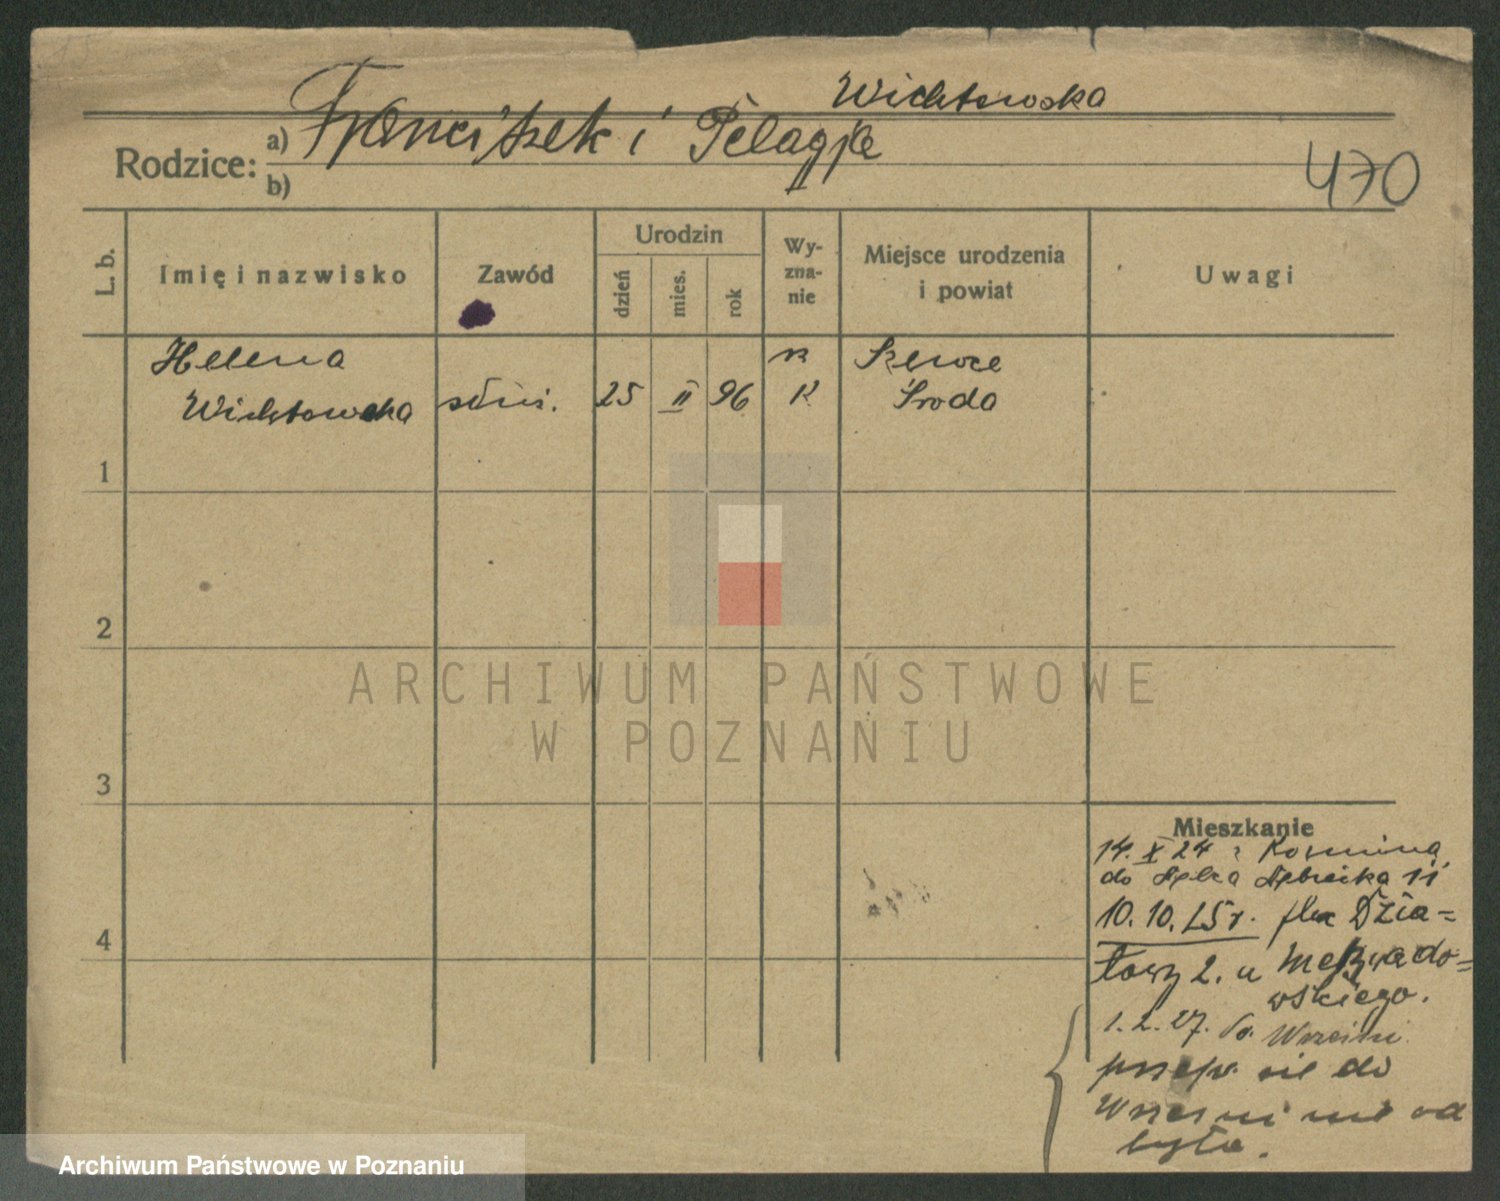 Wichtowska
Rodzice: a) Franciszek i Pelagja
b)
470
L. b.
Imię i nazwisko
Zawód
Urodzin
dzień
mies.
rok
Wy-
zna-
nie
Miejsce urodzenia
i powiat
Uwagi
Helena rz Szewce
Wichtowska służ. 25 II 96 K Środa
1
2
3
4
ARCHIWUM PAŃSTWOWE
W POZNANIU
Mieszkanie
14. X 24 z
do 11
10. 10. 25 r. plac Dzia=
łowy 2. u
wskiego.
1. 2. 27. do Wrześni
przepr. się do
Wrześni nie od
była.
Archiwum Państwowe w Poznaniu